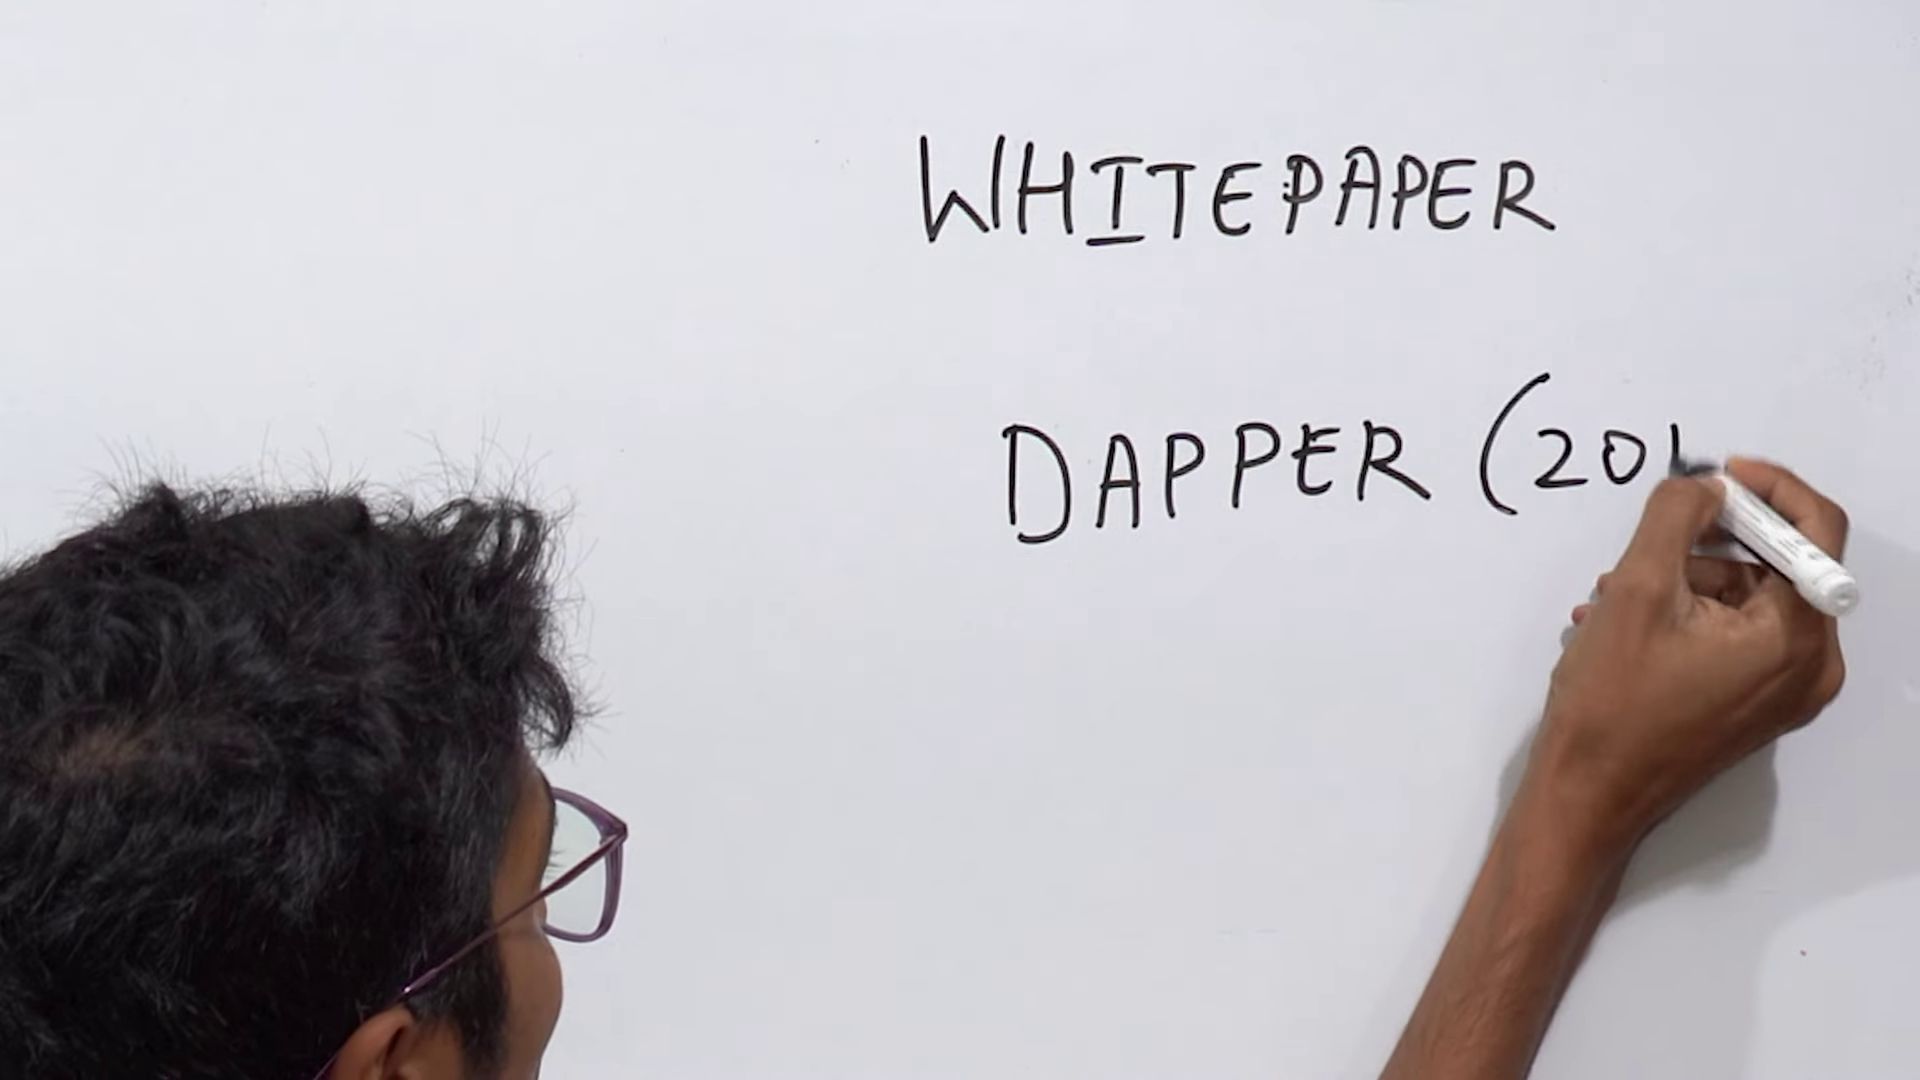 WHITEPAPER
DAPPER (201